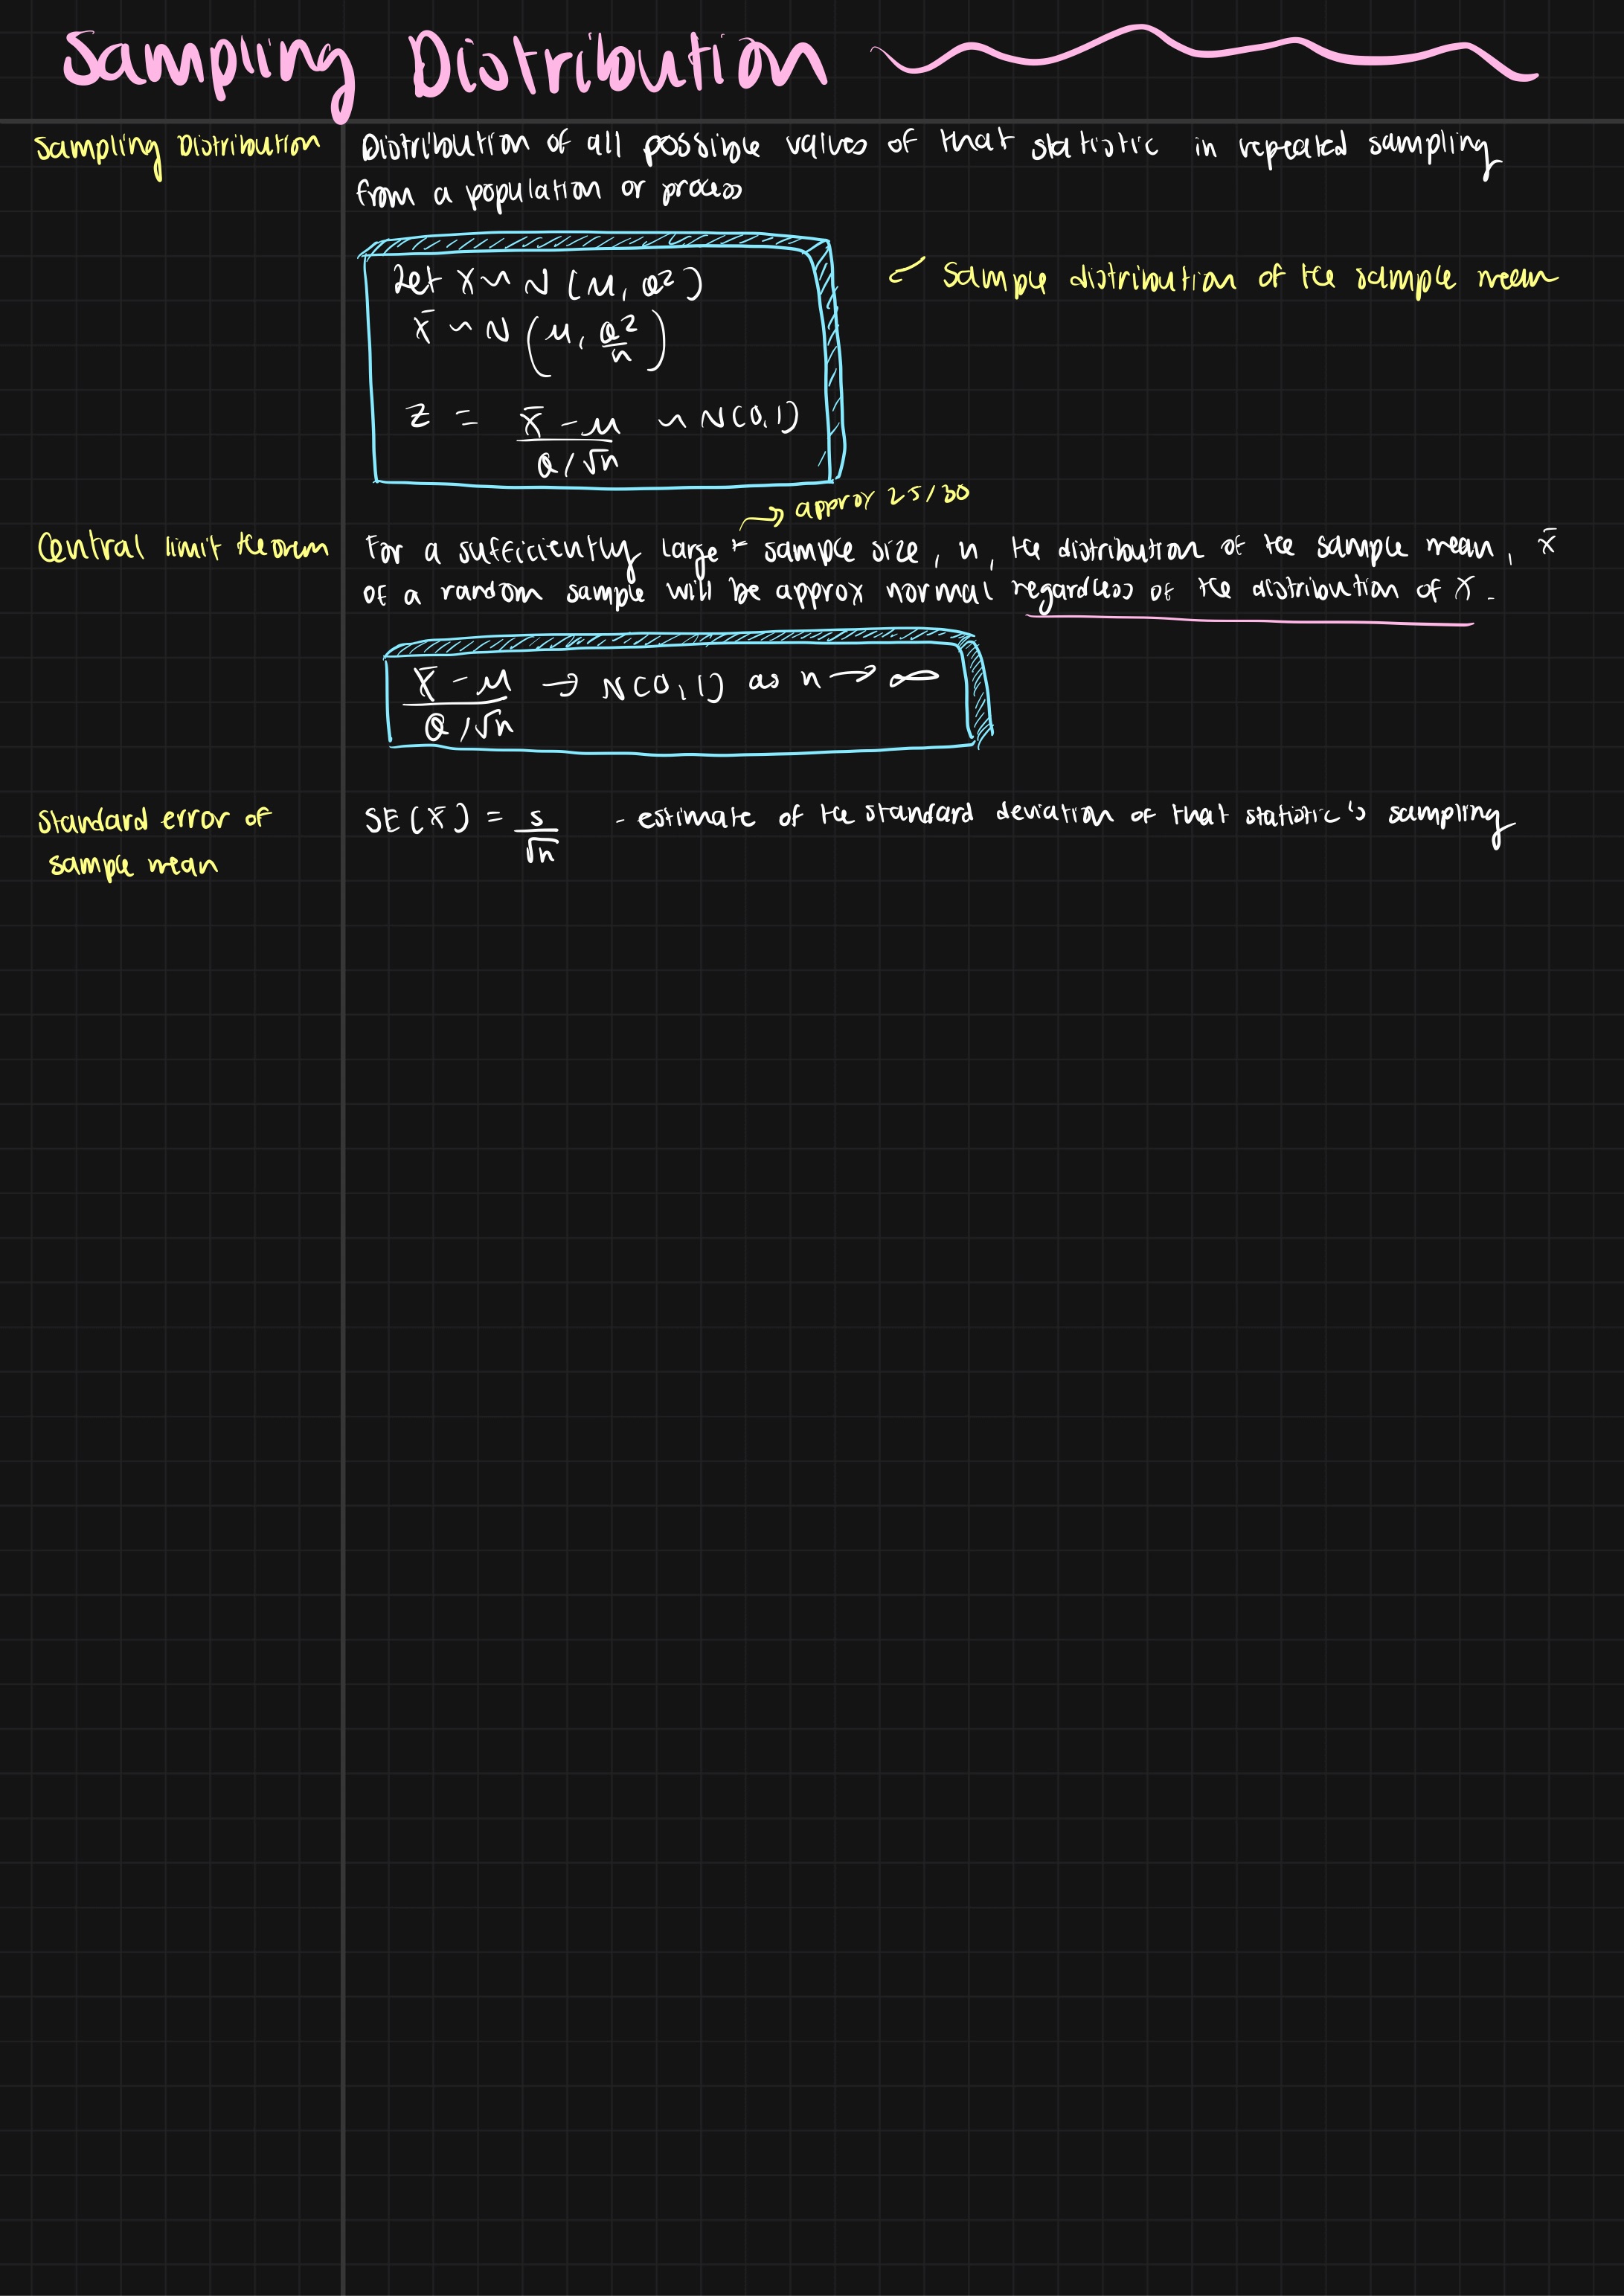 Sampling Distribution
Sampling Distribution
Distribution of all possible values of that statistic in repeated sampling
from a population or process
Let X ~ N (μ, σ²)
Sample distribution of the sample mean
X̄ ~ N (μ, σ²/n)
Z = (X̄ - μ) / (σ/√n) ~ N(0,1)
→ approx 25/30
Central limit theorem
For a sufficiently large * sample size, n, the distribution of the sample mean, x̄
of a random sample will be approx normal regardless of the distribution of X.
(X̄ - μ) / (σ/√n) → N(0,1) as n → ∞
Standard error of
sample mean
SE(X̄) = s/√n - estimate of the standard deviation of that statistic's sampling